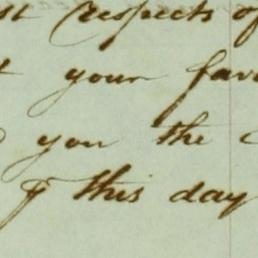 respects of
your
you the
this day